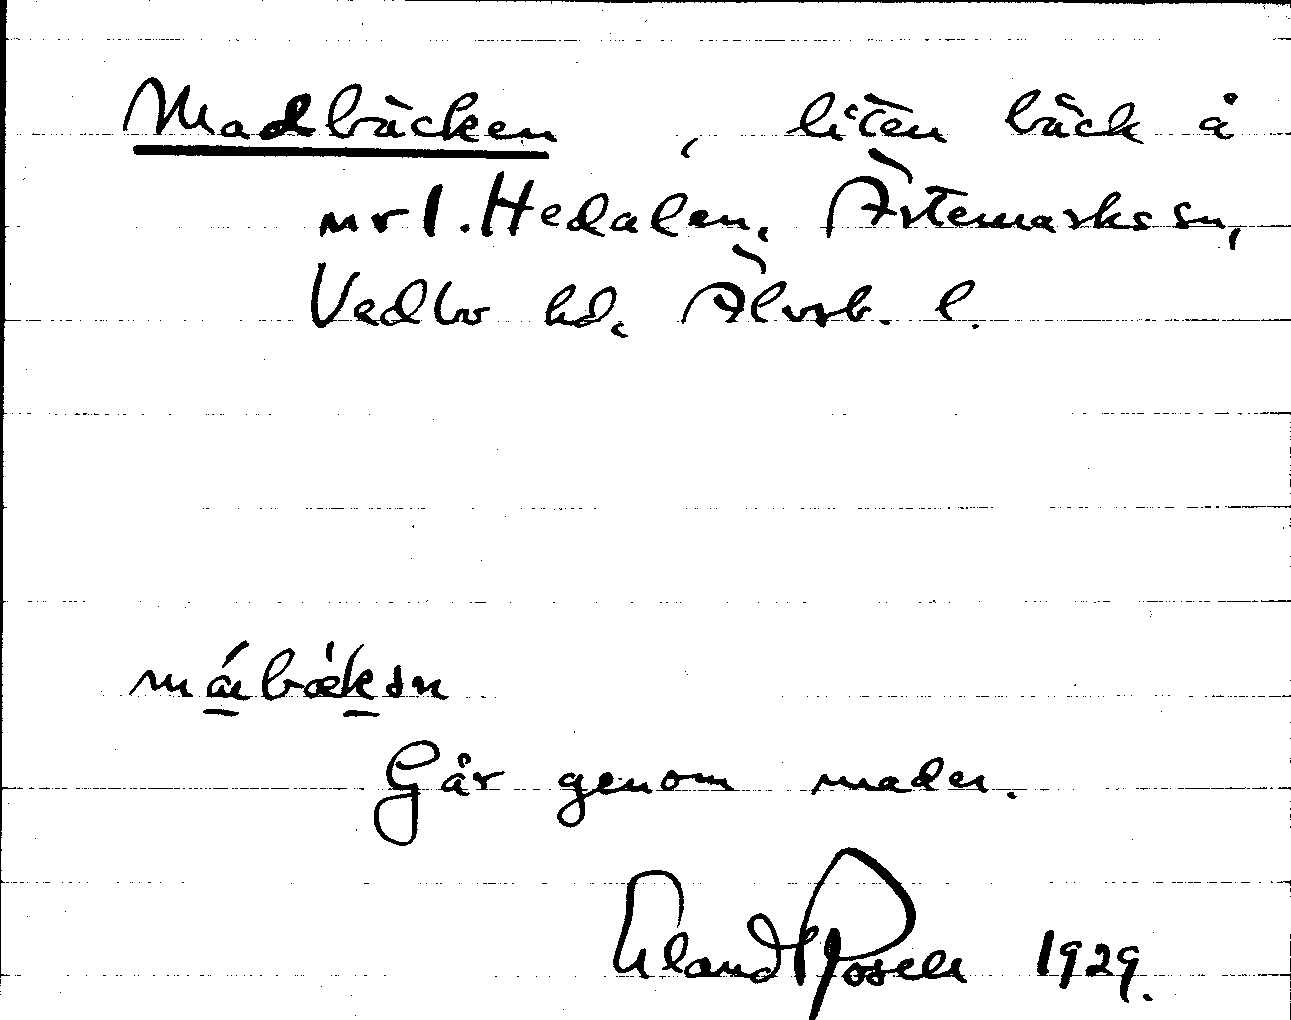 Madbäcken, liten bäck å
nr 1. Hedalen, Ärtemarks sn,
Vedbo hd, Älvsb. l.
Går genom mader.
Erland Rosell 1929.